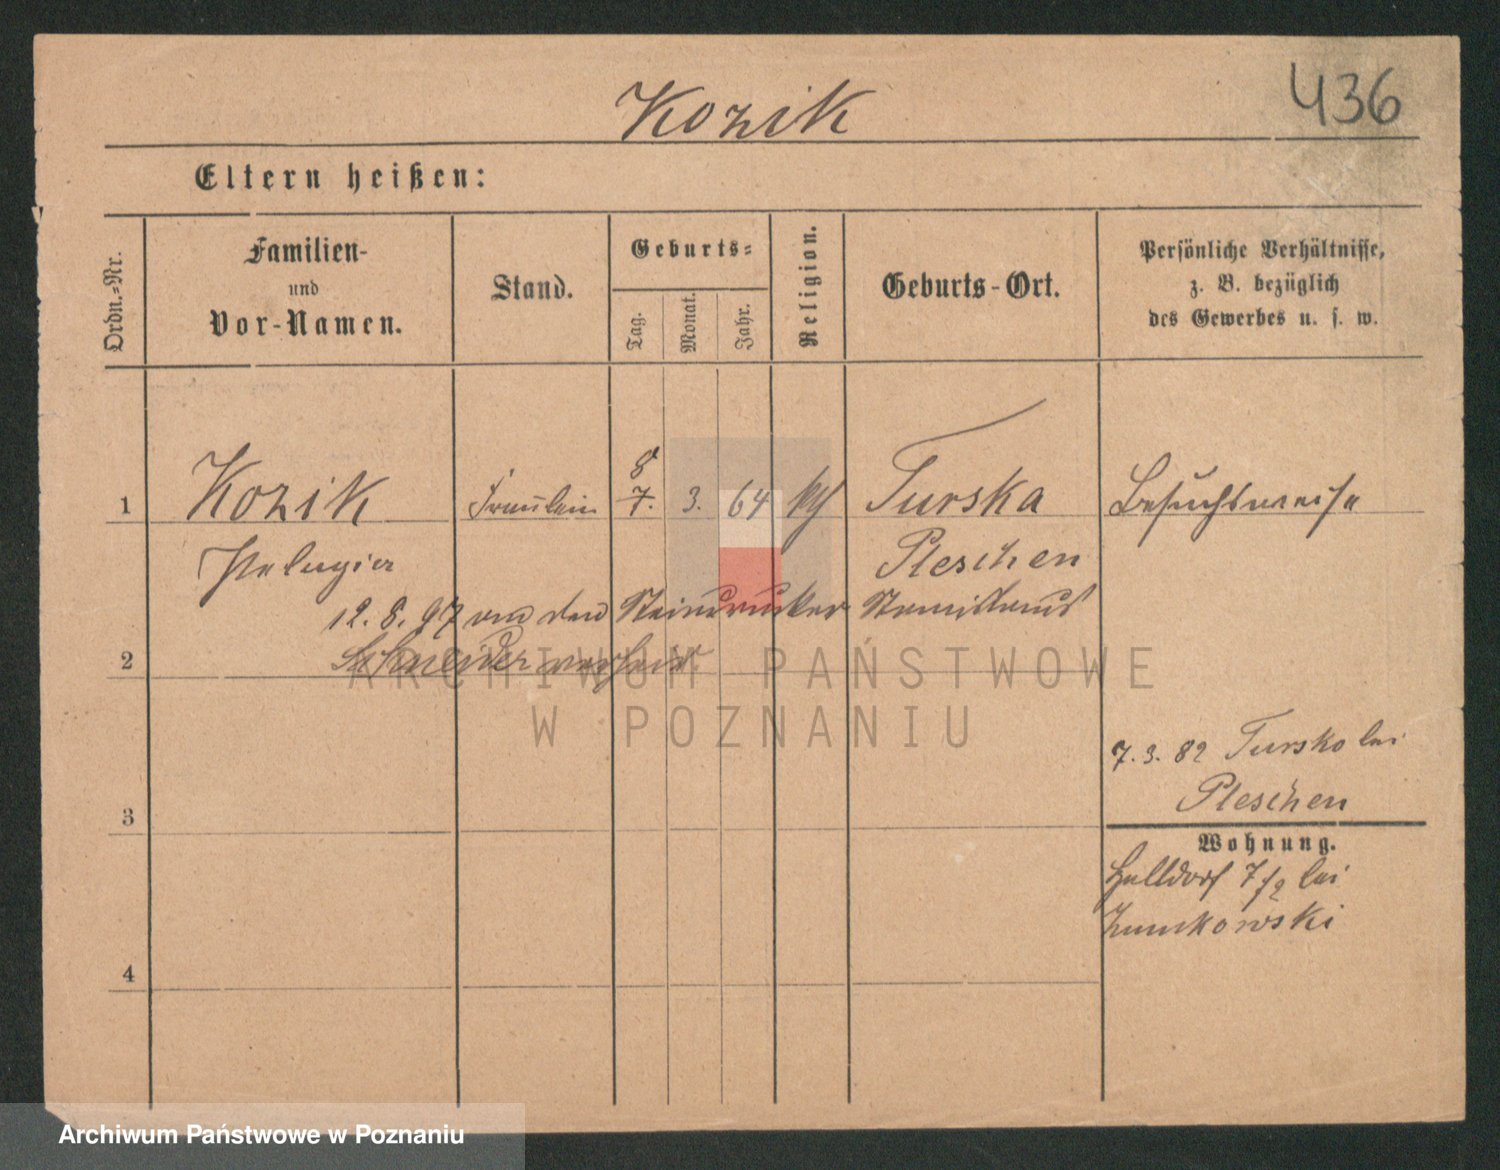 Kozik
436
Eltern heißen:
Ordn.-Nr.
Familien-
und
Vor-Namen.
Stand.
Geburts-
Tag.
Monat.
Jahr.
Religion.
Geburts-Ort.
Persönliche Verhältnisse,
z. B. bezüglich
des Gewerbes u. s. w.
8
1 Kozik Fräulein 7. 3. 64 kth Turska Besuchsweise
Pelagia Pleschen
12. 8. 97 an den Steindrucker Stanislaus
2 Schneider verheir
ARCHIWUM PAŃSTWOWE
W POZNANIU
7. 3. 82 Tursko bei
Pleschen
3
Wohnung.
Halldorf 7/2 bei
4
Archiwum Państwowe w Poznaniu